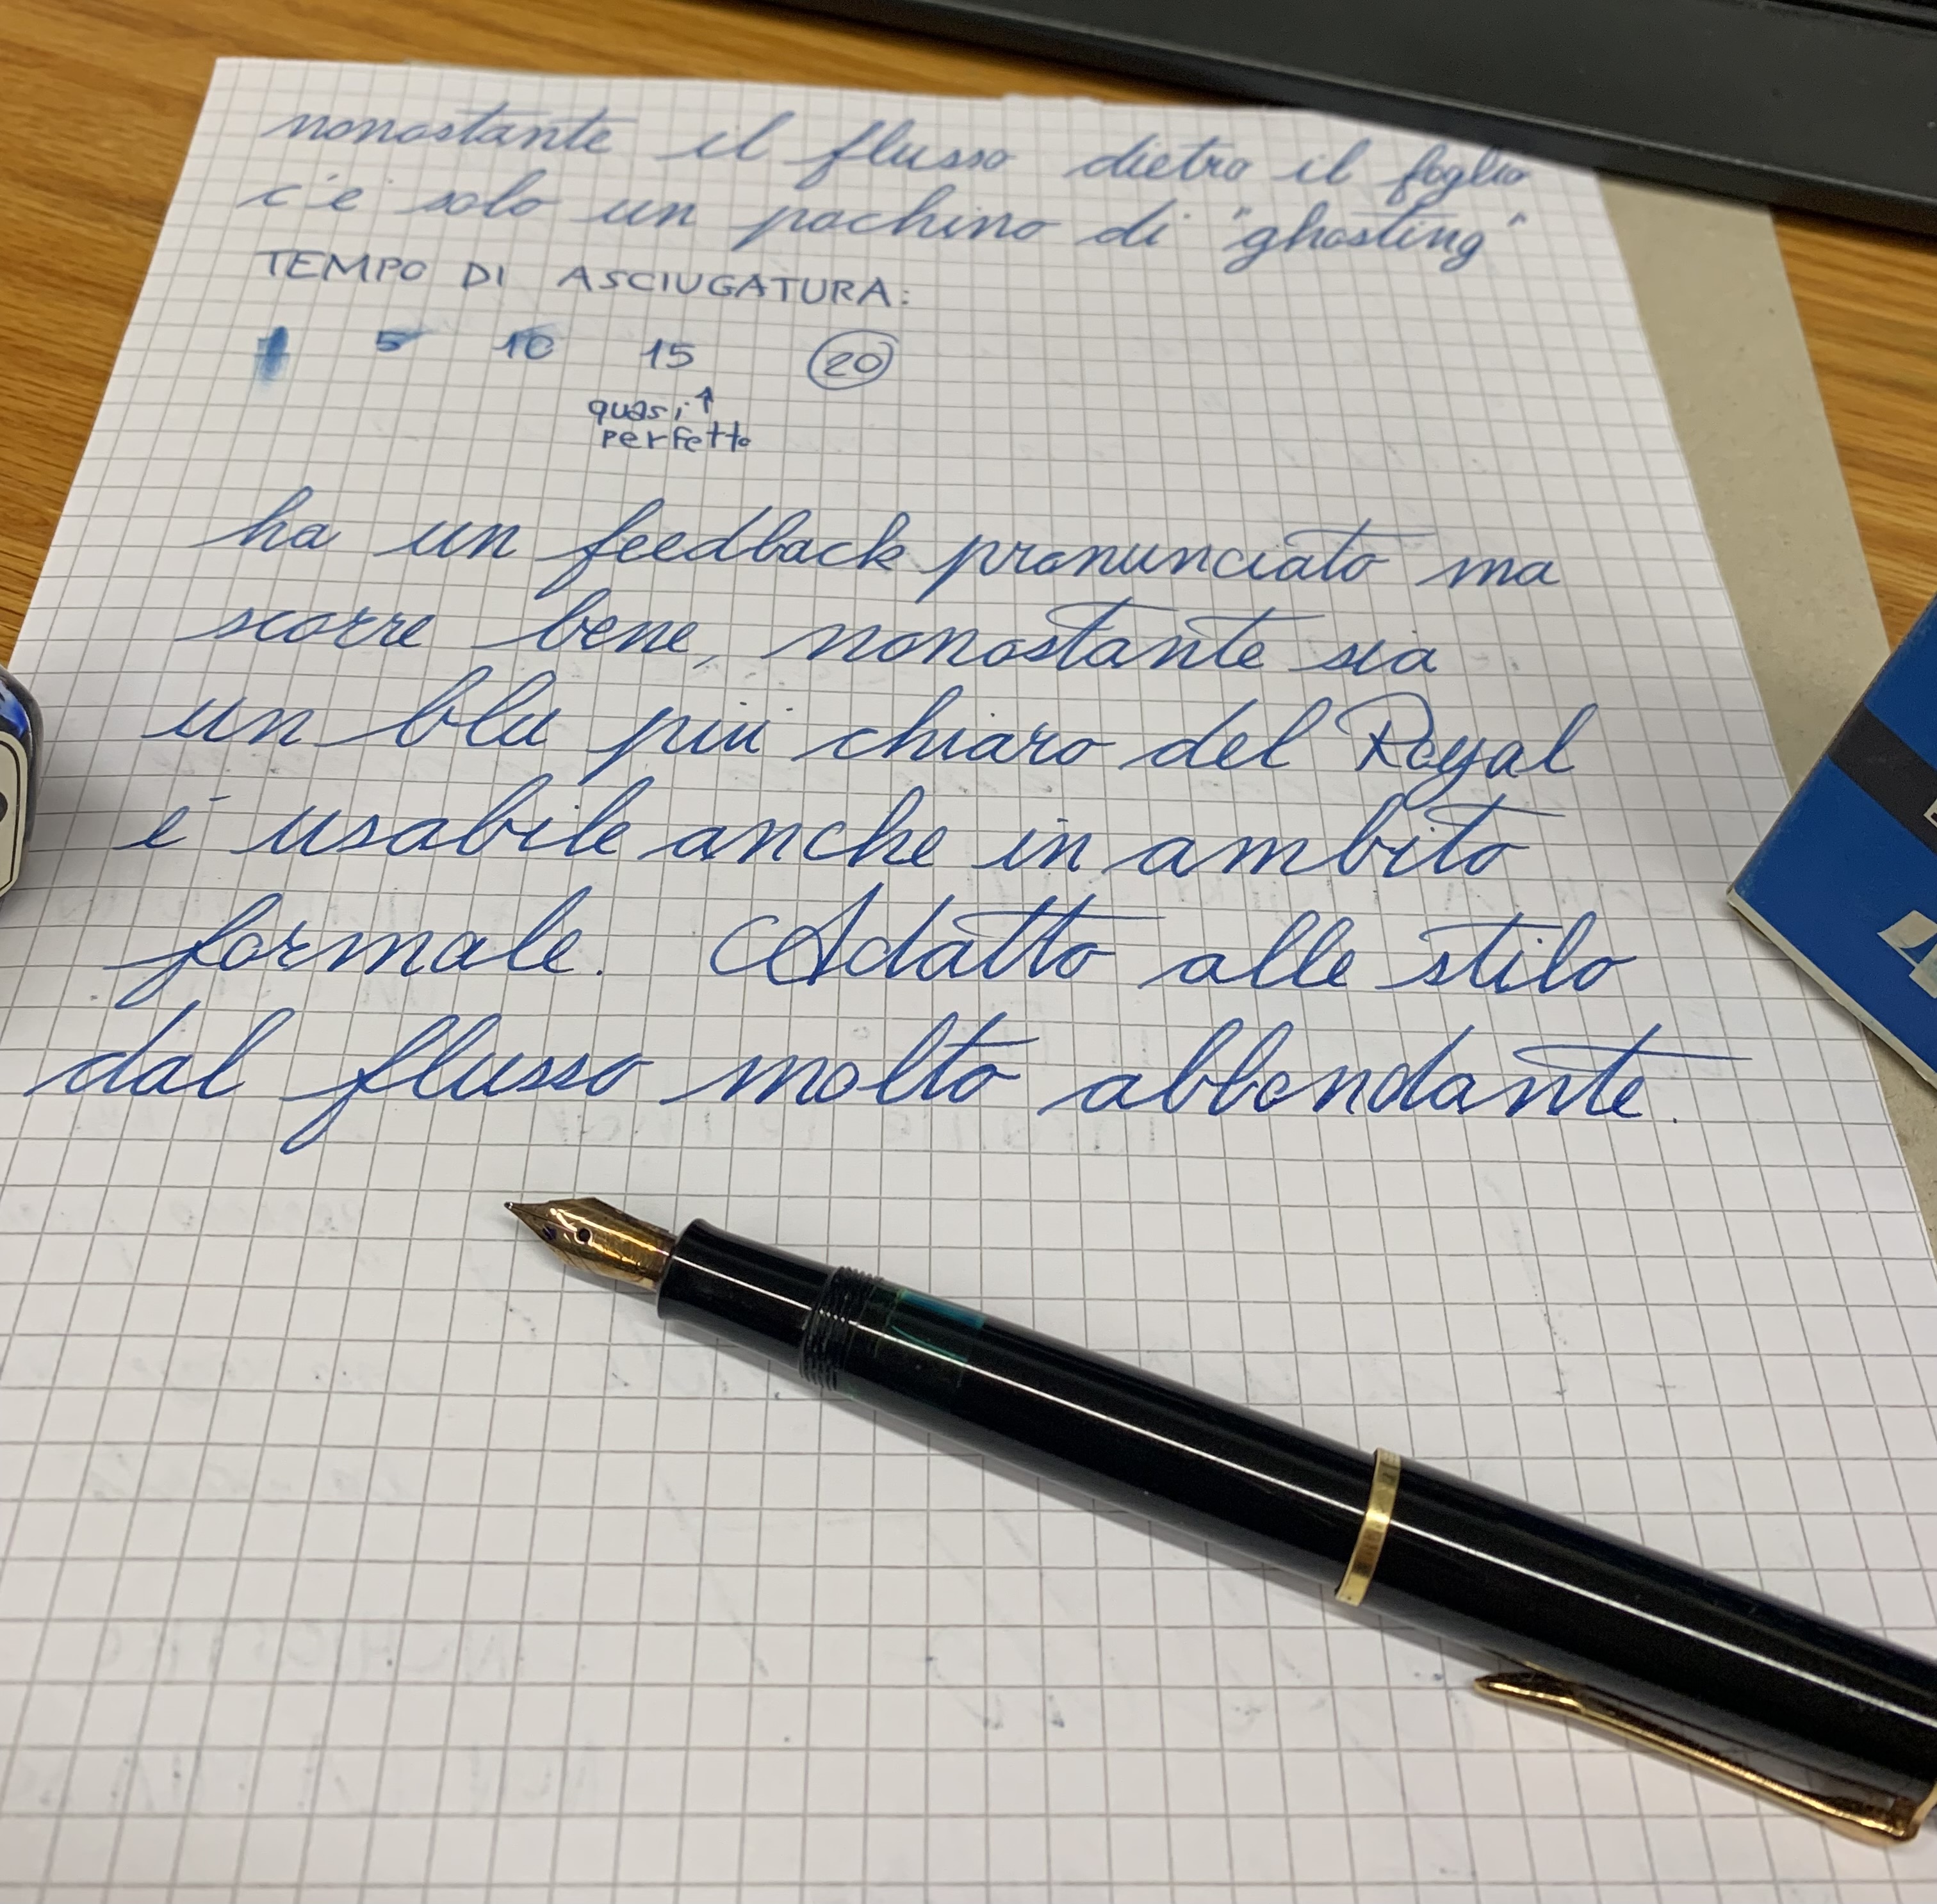 nonostante il flusso dietro il foglio
c'è solo un pochino di "ghosting"
TEMPO DI ASCIUGATURA:
1 5 10 15 20
quasi ↑
perfetto
ha un feedback pronunciato ma
scorre bene, nonostante sia
un blu più chiaro del Royal
è usabile anche in ambito
formale. Adatto alle stilo
dal flusso molto abbondante.